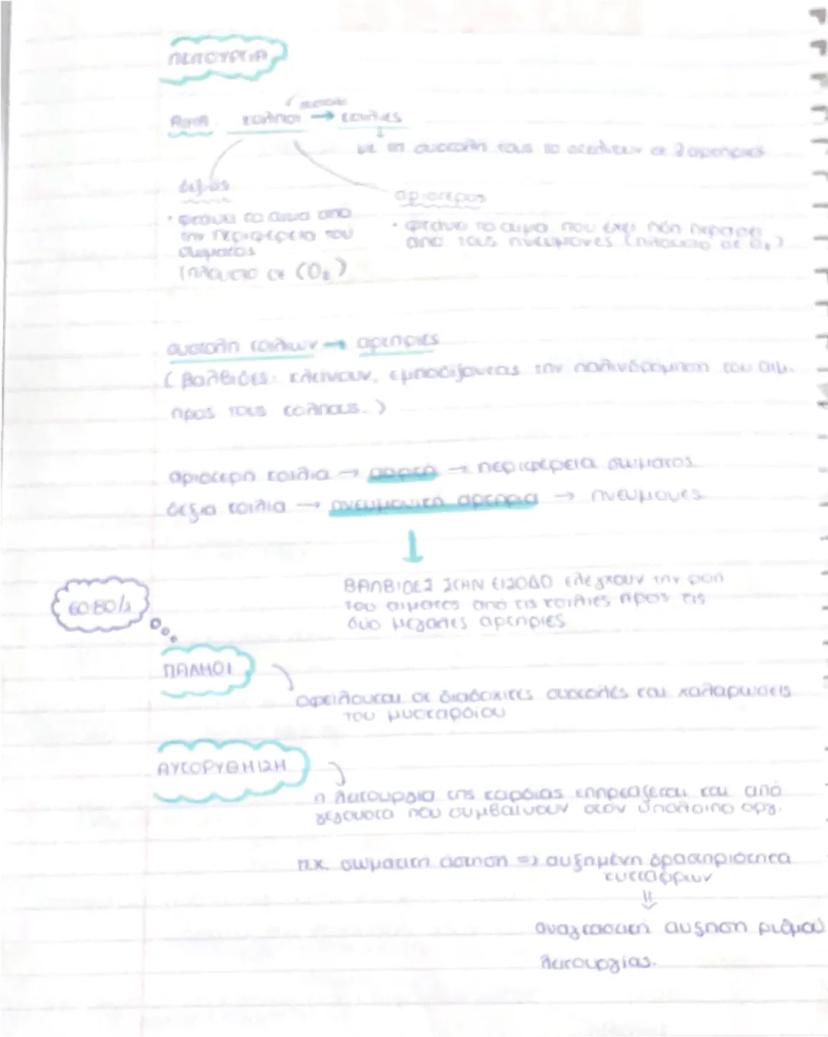 ΛΕΙΤΟΥΡΓΙΑ
κολποι → κοιλιες
με τη συστολη τους το στελνουν σε 2 αρτηριες
δεξιος
αριστερος
• φτανει το αιμα απο
την περιφερεια του
σωματος
(πλουσιο σε CO₂)
• φτανει το αιμα που εχει ηδη περασει
απο τους πνευμονες (πλουσιο σε O₂)
συστολη κοιλιων → αρτηριες
(βαλβιδες: κλεινουν, εμποδιζοντας την παλινδρομηση του αιμ.
προς τους κολπους.)
αριστερη κοιλια → αορτη → περιφερεια σωματος
δεξια κοιλια → πνευμονικη αρτηρια → πνευμονες
ΒΑΛΒΙΔΕΣ ΣΤΗΝ ΕΙΣΟΔΟ ελεγχουν την ροη
του αιματος απο τις κοιλιες προς τις
δυο μεγαλες αρτηριες
60-80/λ
ΠΑΛΜΟΙ
οφειλονται σε διαδοχικες συστολες και χαλαρωσεις
του μυοκαρδιου
ΑΥΤΟΡΥΘΜΙΣΗ
η λειτουργια της καρδιας επηρεαζεται και απο
γεγονοτα που συμβαινουν στον υπολοιπο οργ.
π.χ. σωματικη ασκηση => αυξημενη δραστηριοτητα
κυτταρων
αναγκαστικη αυξηση ρυθμου
λειτουργιας.